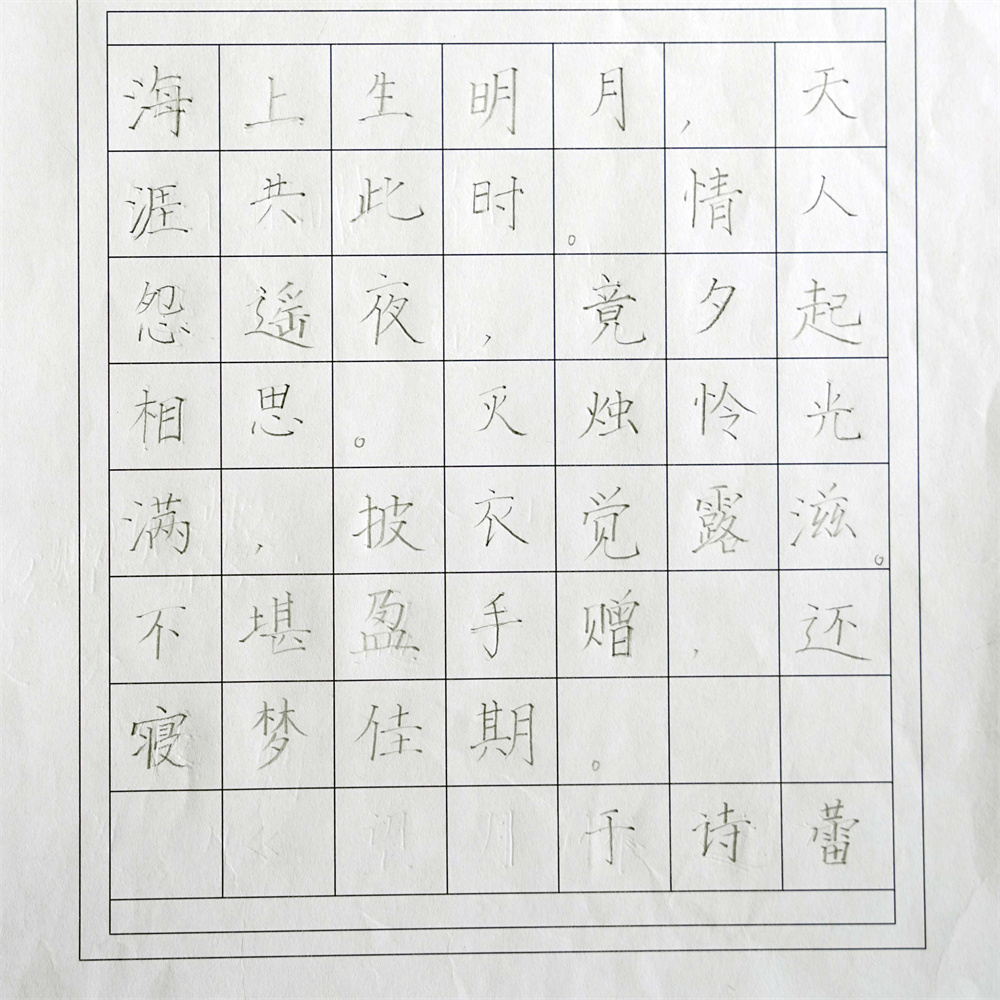 海上生明月，天
涯共此时。情人
怨遥夜，竟夕起
相思。灭烛怜光
满，披衣觉露滋。
不堪盈手赠，还
寝梦佳期。
于诗蕾